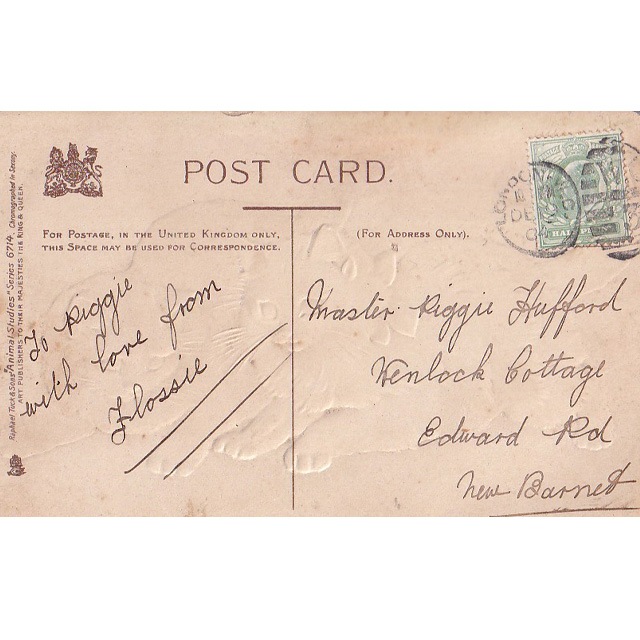 POST CARD.
FOR POSTAGE, IN THE UNITED KINGDOM ONLY,
THIS SPACE MAY BE USED FOR CORRESPONDENCE.
(FOR ADDRESS ONLY).
To Riggie
with love from
Flossie
Master Riggie Hufford
Wenlock Cottage
Edward Rd
New Barnet
Raphael Tuck & Sons' "Animal Studies" Series 6714. Chromographed in Saxony.
ART PUBLISHERS TO THEIR MAJESTIES THE KING & QUEEN.
LONDON
DE
04